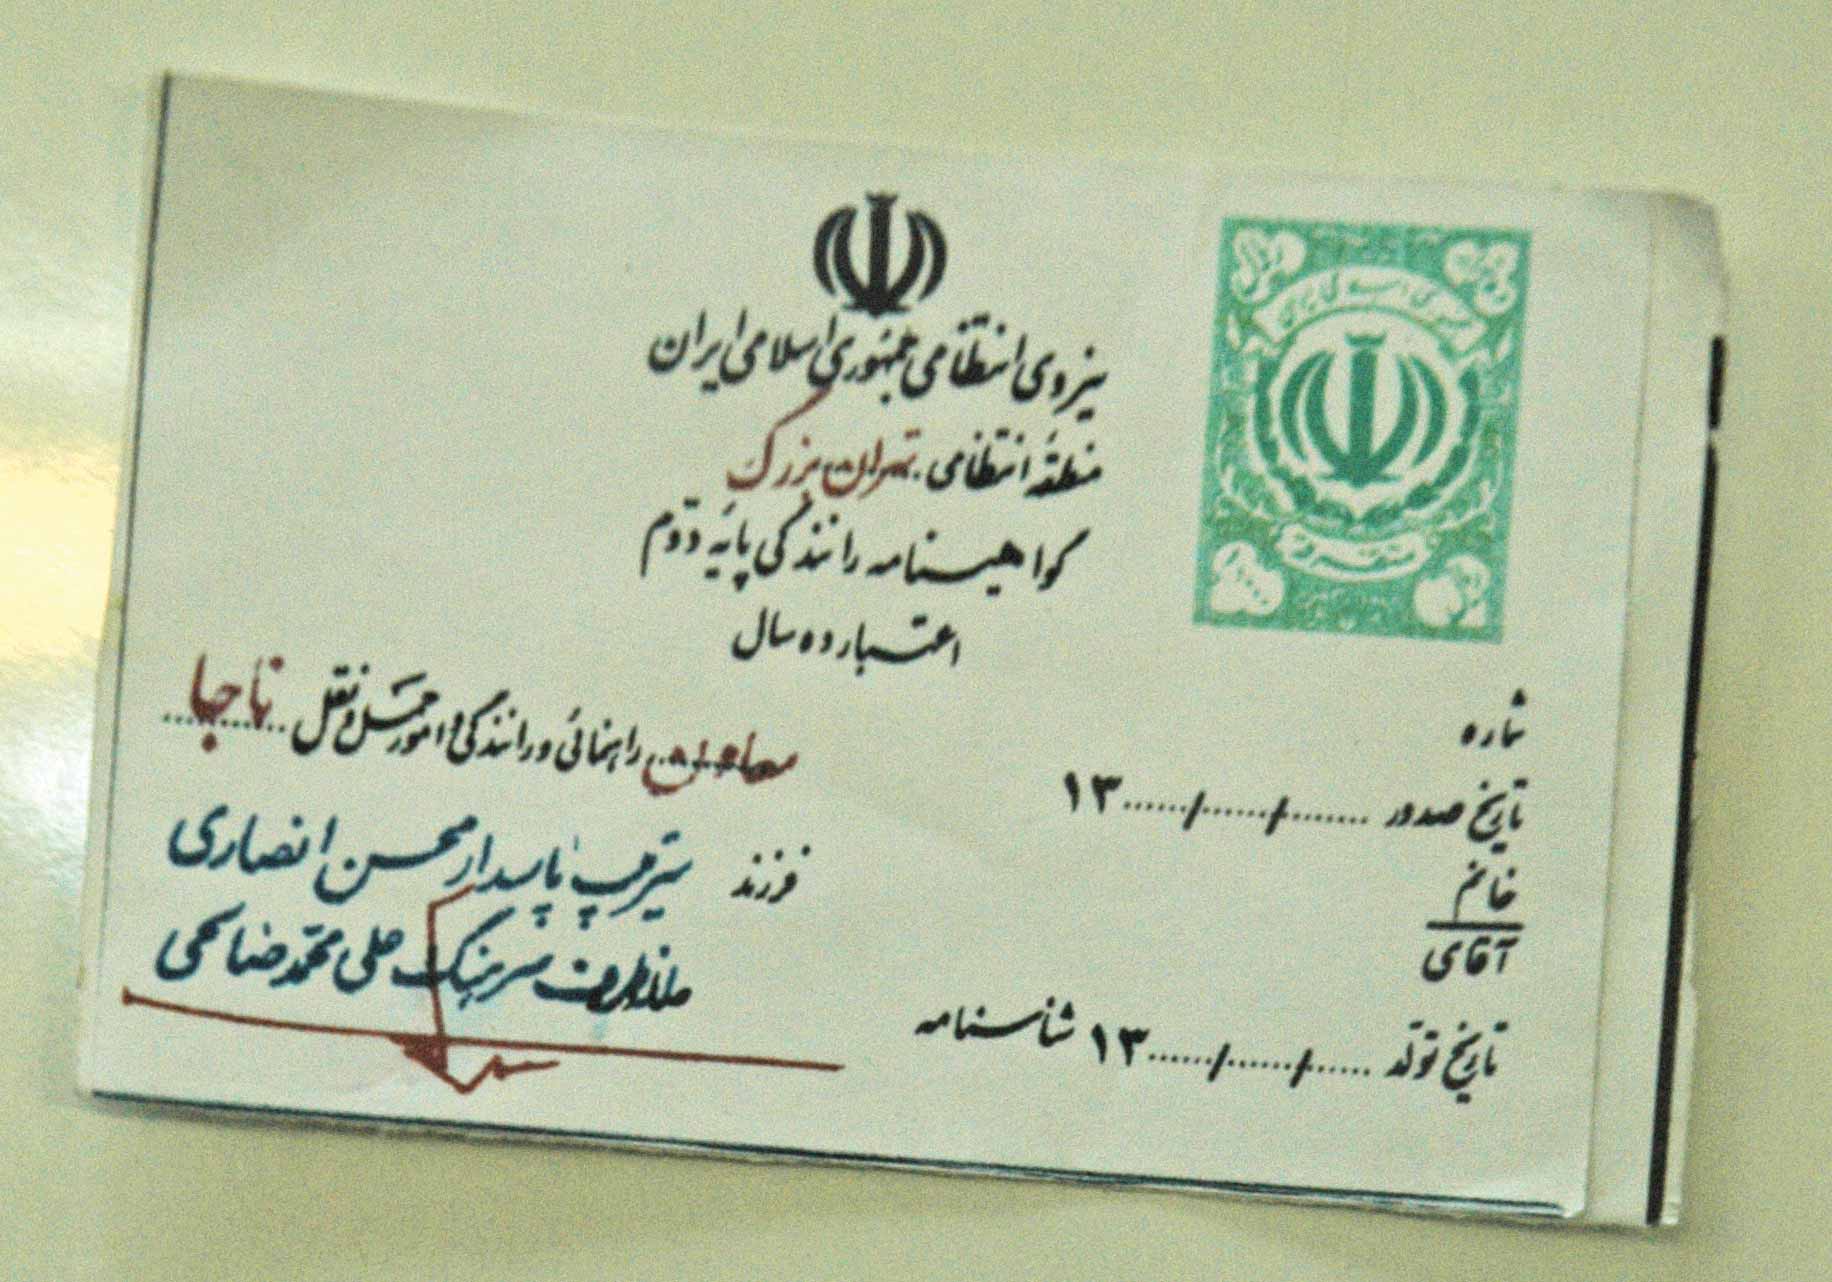 نیروی انتظامی جمهوری اسلامی ایران
منطقه انتظامی تهران بزرگ
گواهینامه رانندگی پایه دوم
اعتبار ده سال
شماره
تاریخ صدور ....../....../......۱۳
خانم
آقای
فرزند
تاریخ تولد ....../....../......۱۳ شناسنامه
معاون راهنمائی و رانندگی و امور حمل و نقل ناجا
سرتیپ پاسدار محسن انصاری
از طرف سرهنگ علی محمد